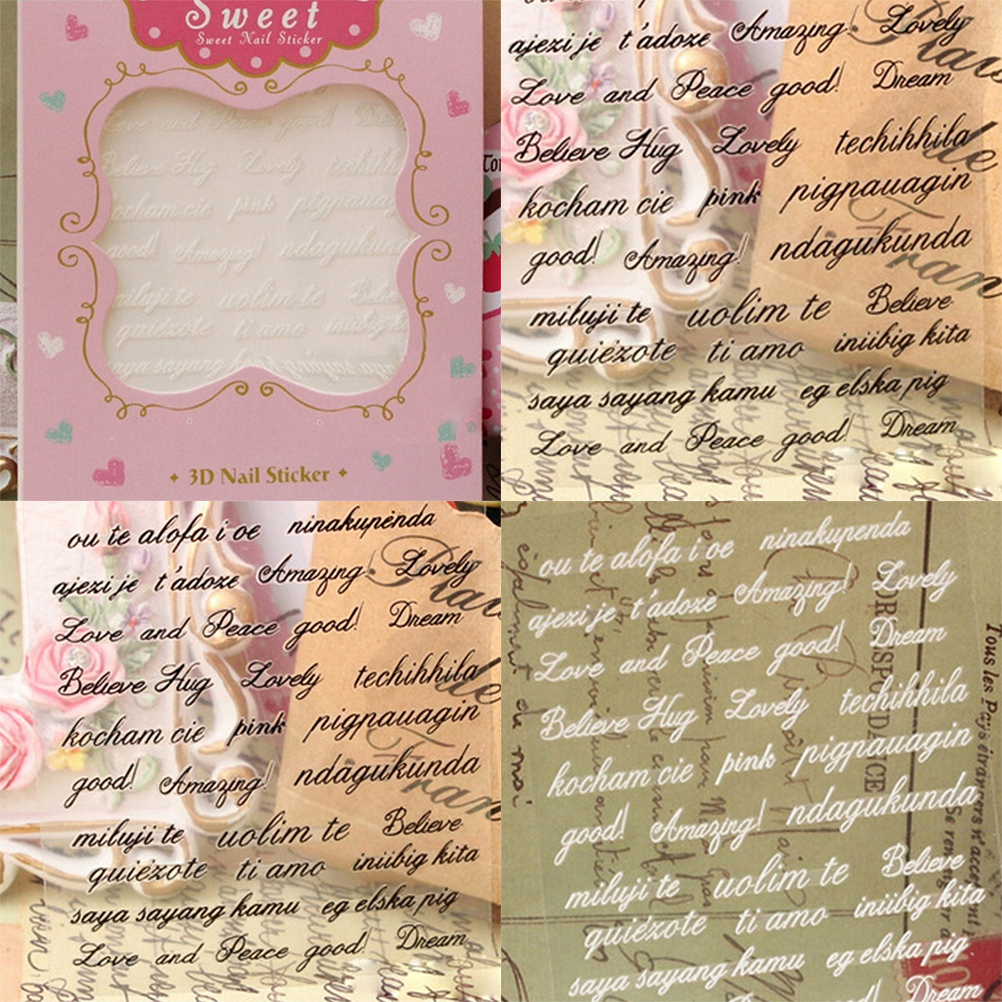 Sweet
Sweet Nail Sticker
Love and Peace good! Dream
Believe Hug Lovely
kocham cie pink pigpauag
good! Amazing! ndagukun
miluji te uolim te Belie
quiézote ti amo iniibig k
saya sayang
3D Nail Sticker
ajezi je t'adoze Amazing! Lovely
Love and Peace good! Dream
Believe Hug Lovely techihhila
kocham cie pink pigpauagin
good! Amazing! ndagukunda
miluji te uolim te Believe
quiézote ti amo iniibig kita
saya sayang kamu eg elska pig
Love and Peace good! Dream
ou te alofa i oe ninakupenda
ajezi je t'adoze Amazing! Lovely
Love and Peace good! Dream
Believe Hug Lovely techihhila
kocham cie pink pigpauagin
good! Amazing! ndagukunda
miluji te uolim te Believe
quiézote ti amo iniibig kita
saya sayang kamu eg elska pig
Love and Peace good! Dream
ou te alofa i oe ninakupenda
ajezi je t'adoze Amazing! Lovely
Love and Peace good! Dream
Believe Hug Lovely techihhila
kocham cie pink pigpauagin
good! Amazing! ndagukunda
miluji te uolim te Believe
quiézote ti amo iniibig kita
saya sayang kamu eg elska pig
Dream
Tous les Pays étrangers n'accep